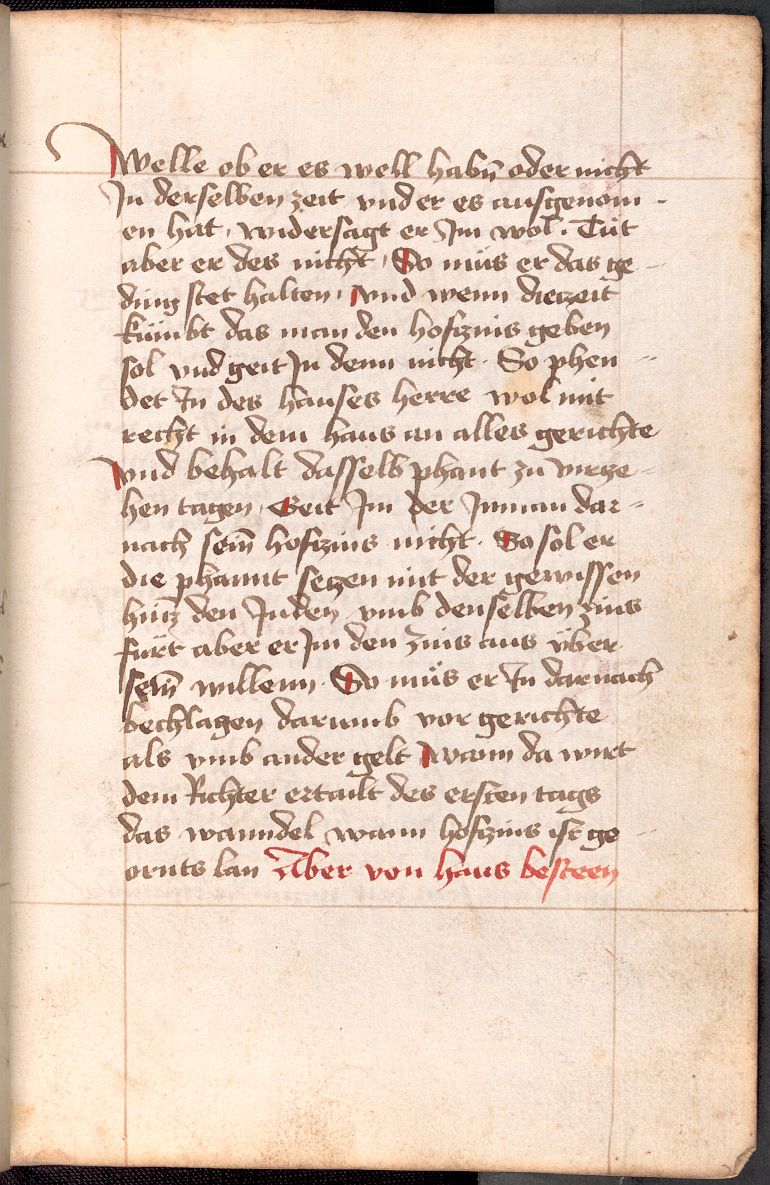 welle ob er es well habn̄ oder nicht
In derselben zeit vnd er es ausgenom -
en hat, widersagt er Im wol. Tüt
aber er des nicht, So müs er das ge -
ding stet halten, vnd wenn die zeit
kümbt das man den hofzins geben
sol vnd geit In denn nicht. So phen -
det In des hauses herre wol mit
recht in dem haus an alles gerichte
vnd behalt dasselb phant zu virze -
hen tagen, Geit Im der Inman dar -
nach sein̄ hofzins nicht. So sol er
die phannt seczen mit der gewissen
hincz den Juden vmb denselben zins
fürt aber er Im den zins aus über
sein̄ willenn. So müs er In darnach
bechlagen darumb vor gerichte
als vmb ander gelt wann da wirt
dem Richter ertailt des ersten tags
das wanndel wann hofzins ist ge -
ornts lan Aber von haus besteen